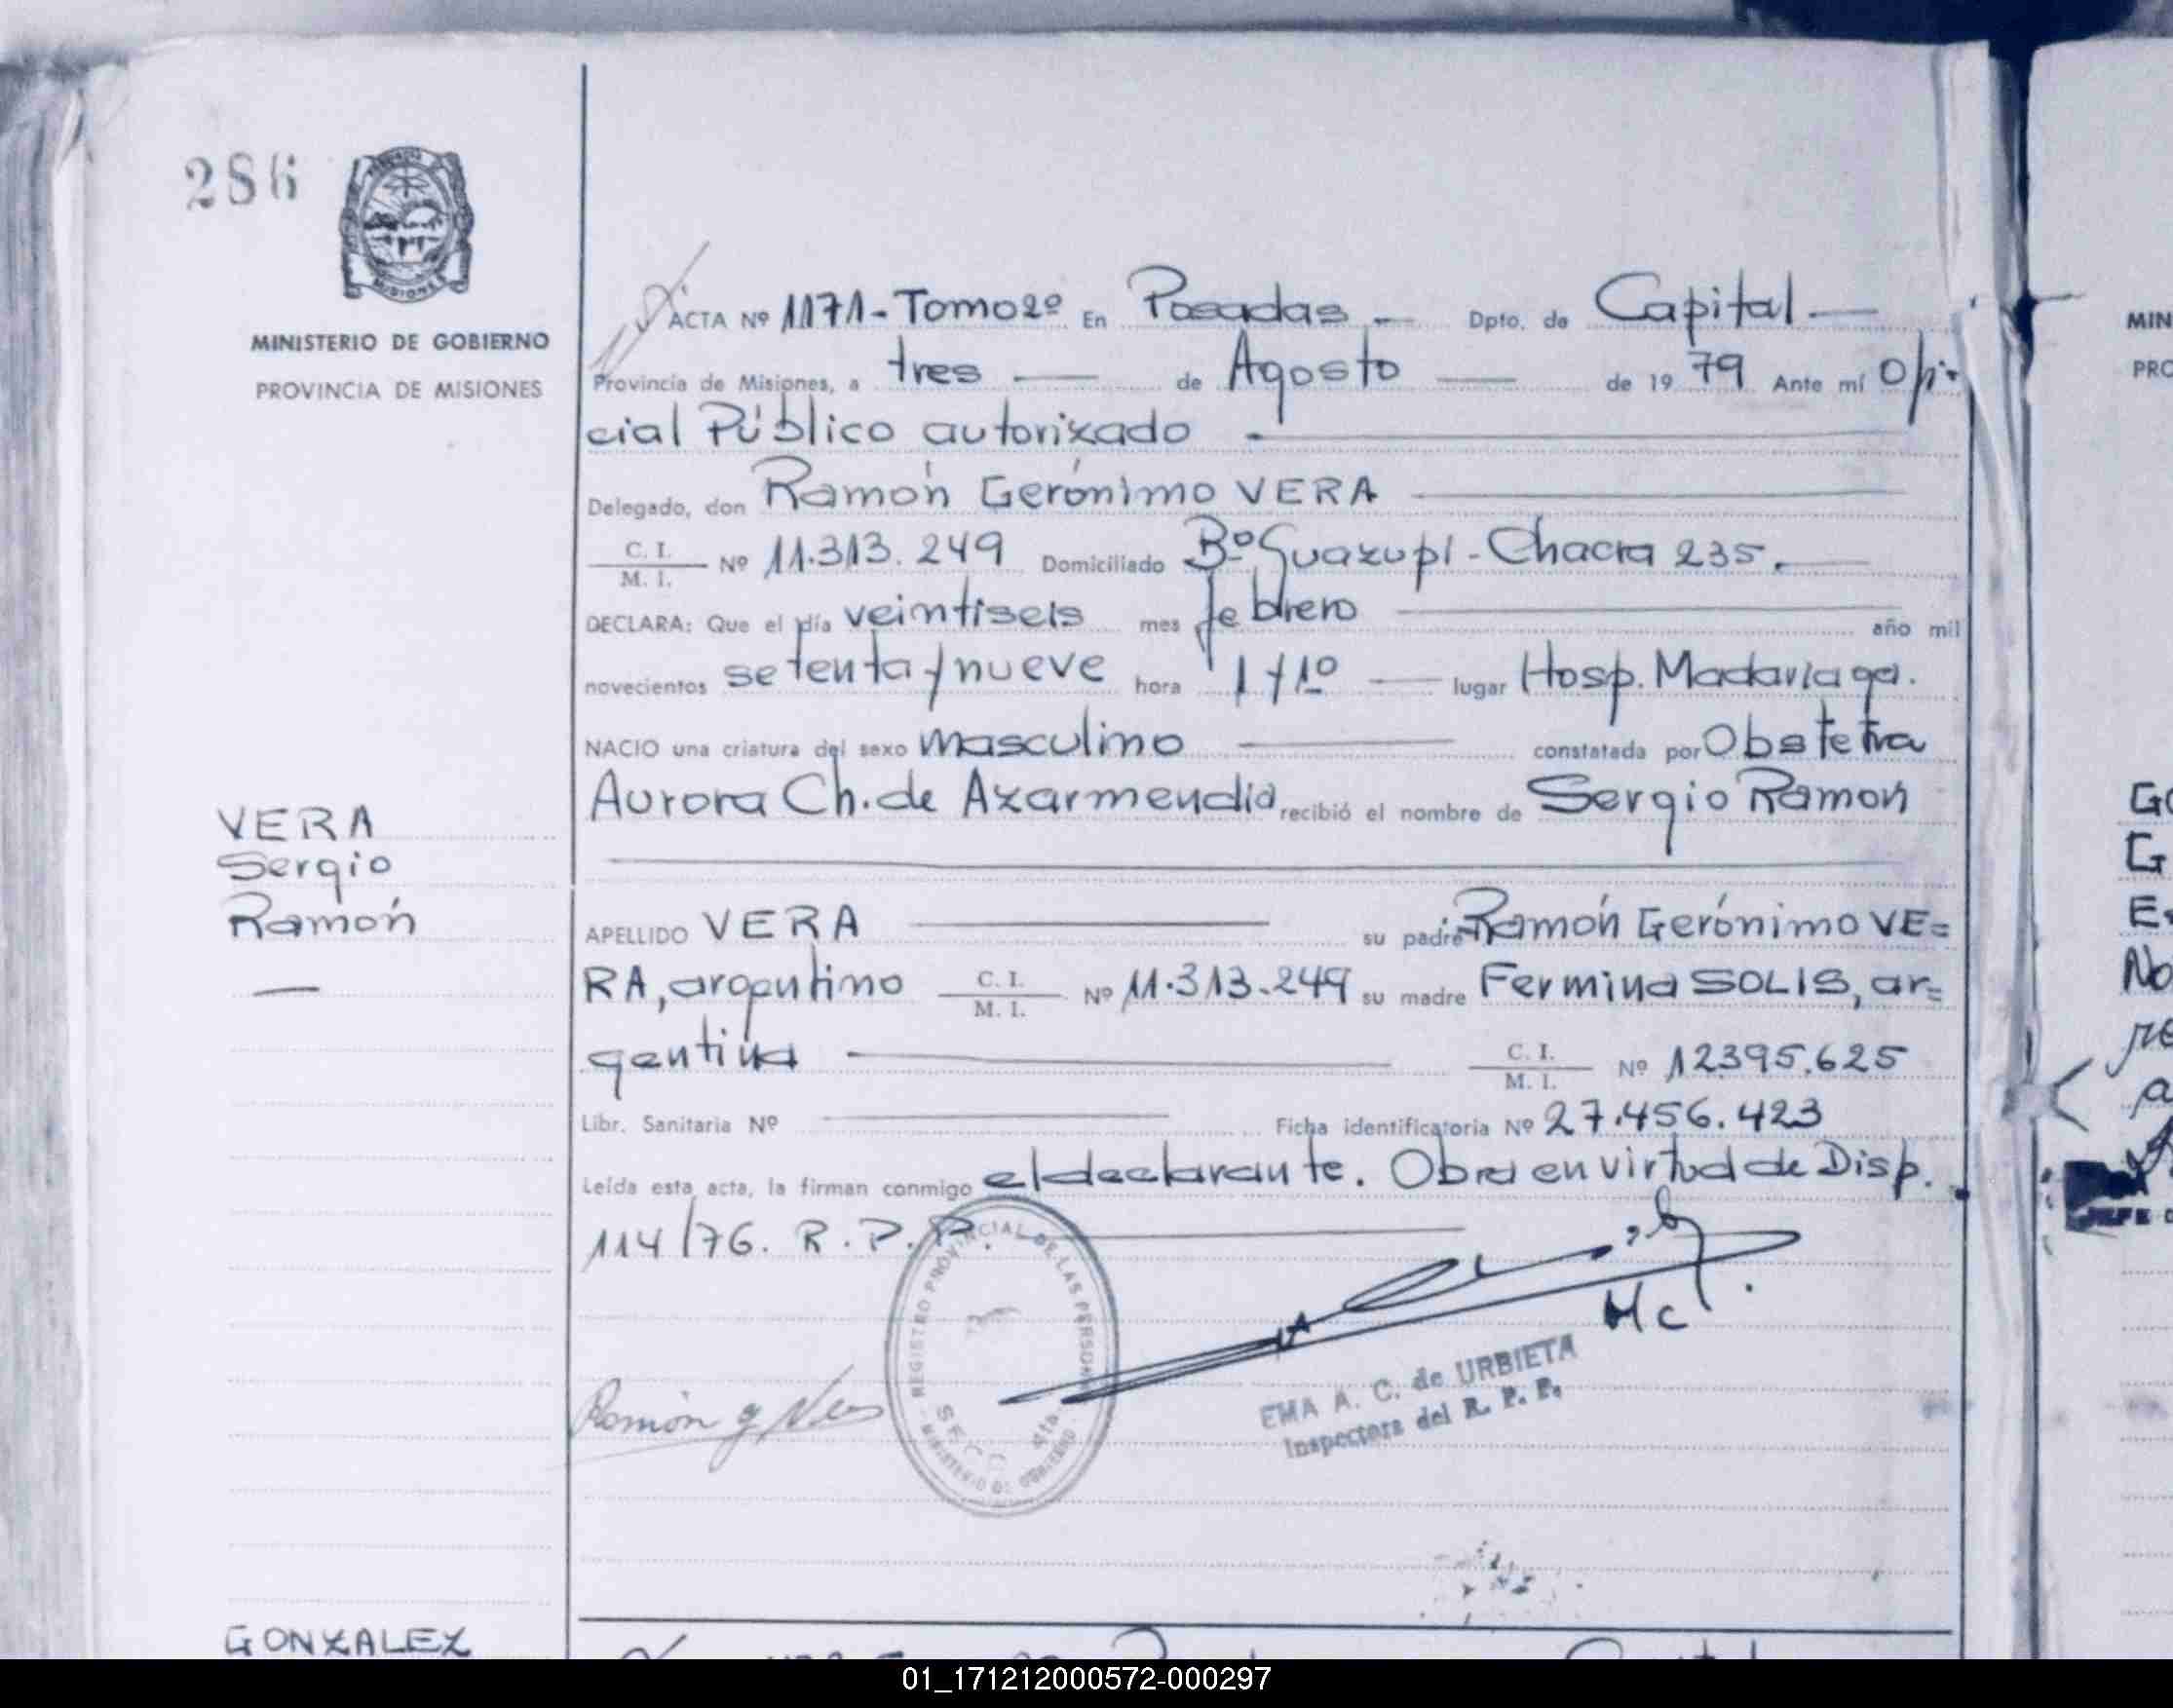 286
MISIONES
MINISTERIO DE GOBIERNO
PROVINCIA DE MISIONES
ACTA Nº 1171 - Tomo 2º En Posadas Dpto. de Capital
Provincia de Misiones, a tres de Agosto de 1979 Ante mí Ofi-
cial Público autorizado
Delegado, don Ramón Gerónimo VERA
C. I. / M. I. Nº 11.313.249 Domiciliado Bº Guazupi - Chacra 235.
DECLARA: Que el día veintiseis mes febrero año mil
novecientos setenta y nueve hora 1 y 1º lugar Hosp. Madariaga.
NACIO una criatura del sexo masculino constatada por Obstetra
Aurora Ch. de Azarmendia recibió el nombre de Sergio Ramón
VERA
Sergio
Ramón
APELLIDO VERA su padre Ramón Gerónimo VE=
RA, argentino C. I. / M. I. Nº 11.313.249 su madre Fermina SOLIS, ar=
gentina C. I. / M. I. Nº 12395.625
Libr. Sanitaria Nº Ficha identificatoria Nº 27.456.423
Leída esta acta, la firman conmigo el declarante. Obra en virtud de Disp.
114/76. R. P. P.
REGISTRO PROVINCIAL DE LAS PERSONAS
MINISTERIO DE GOBIERNO
Ramón G Vera
Mc
EMA A. C. de URBIETA
Inspectora del R. P. P.
GONZALEZ
MIN
PRO
GO
G
No
re
a
JEFE
01_171212000572-000297